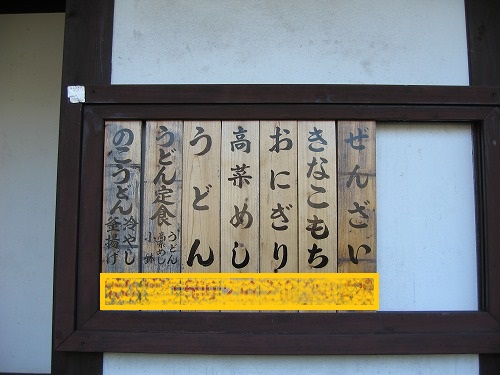 ぜんざい
きなこもち
おにぎり
高菜めし
うどん
うどん定食
うどん
高菜めし
小鉢
のこうどん
冷やし
釜揚げ